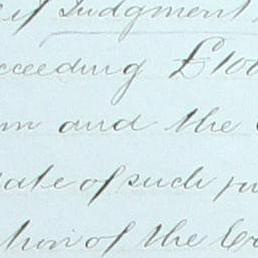 of Judgment
ceeding £100
and the
date of such
tion of the